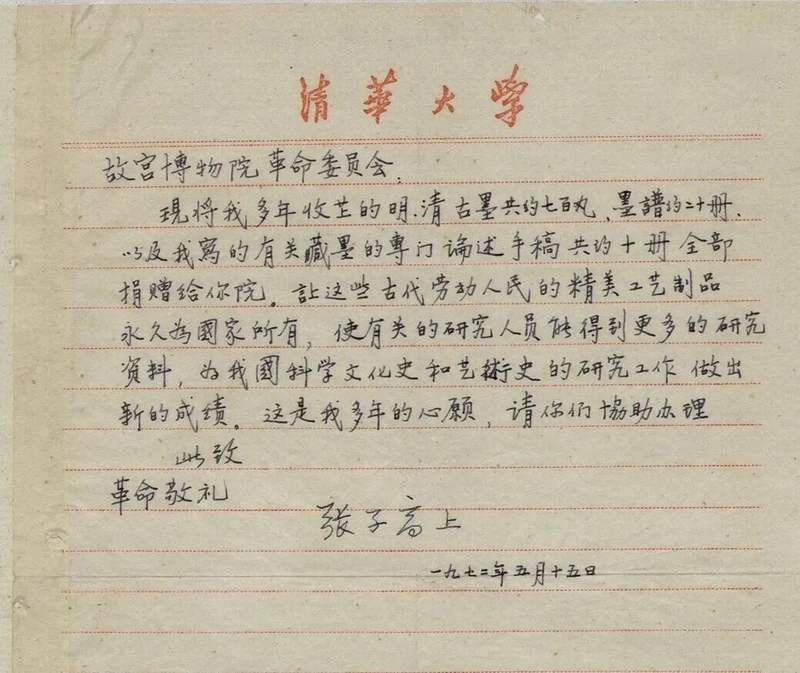 清華大学
故宫博物院革命委员会:
現将我多年收芷的明.清古墨共约七百丸、墨譜约二十册.
以及我寫的有关藏墨的專门论述手稿共约十册全部
捐赠给你院。訨这些古代劳动人民的精美工艺制品
永久為國家所有，使有关的研究人员能得到更多的研究
资料，为我國科学文化史和艺術史的研究工作做出
新的成绩。这是我多年的心願，请你们協助办理
此致
革命敬礼
张子高上
一九七二年五月十五日